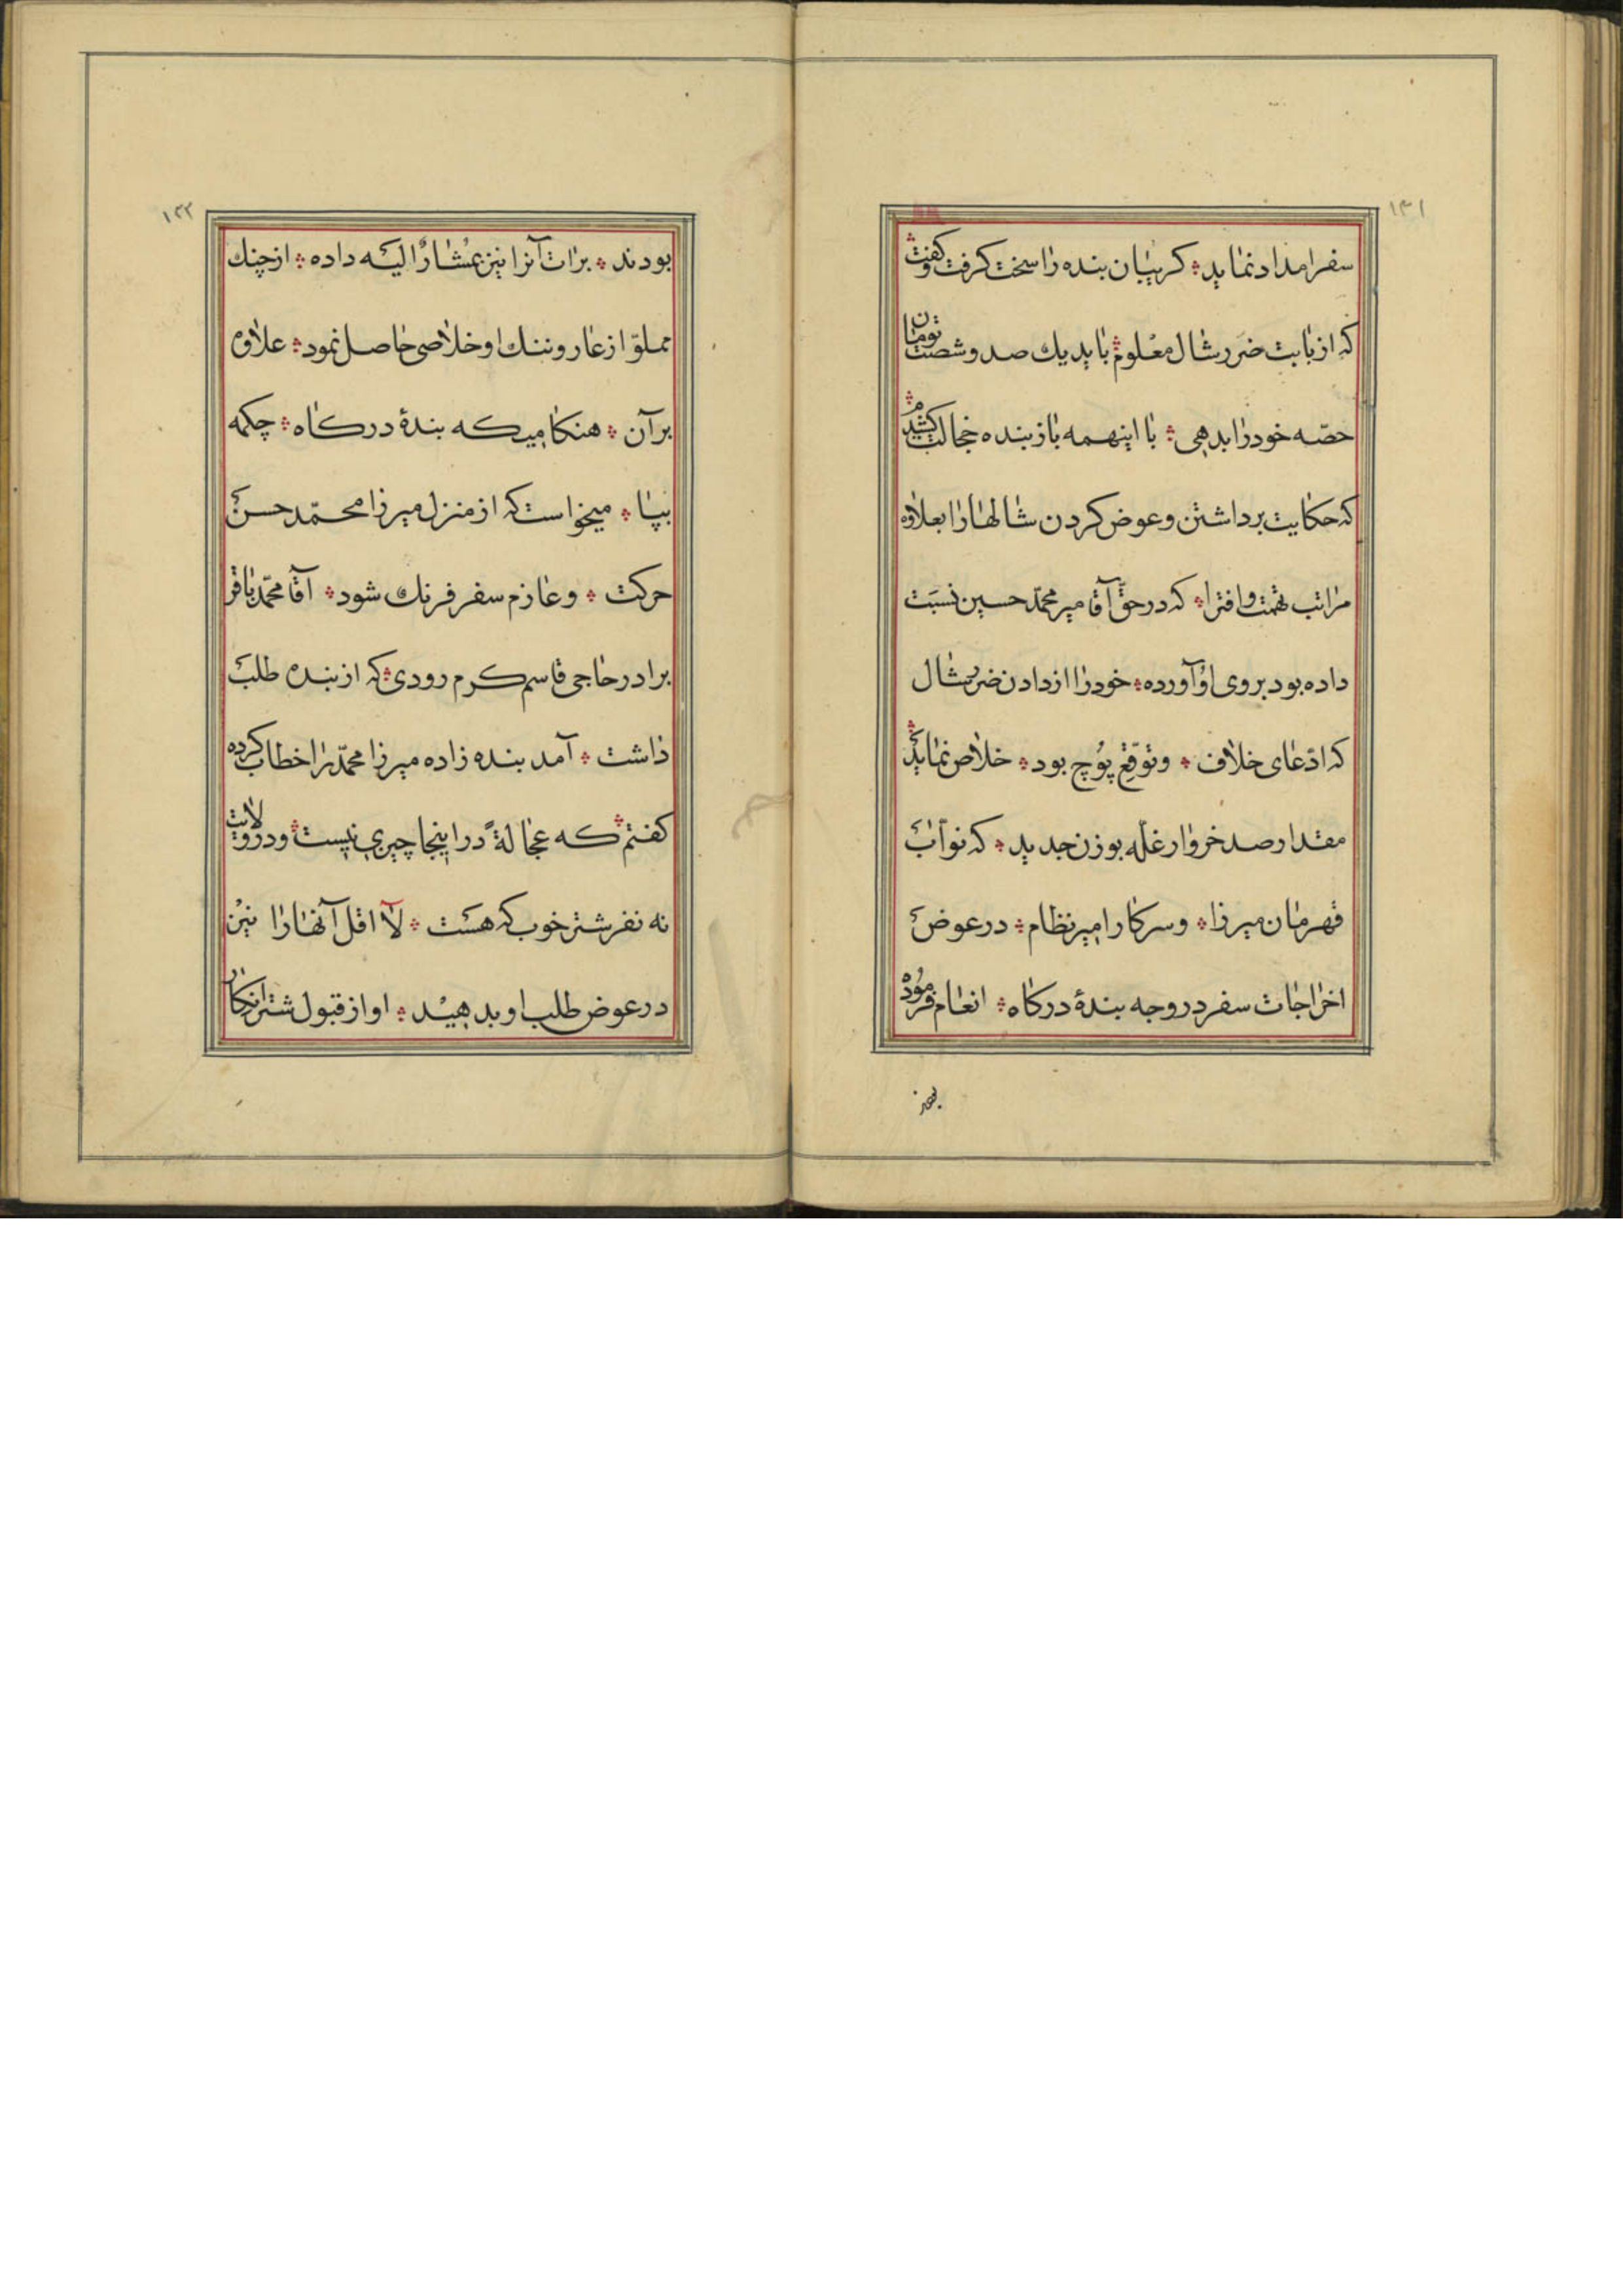 ۱۳۱
سفر امداد نماید ؞ کریبان بنده را سخت کرفت و کفت ؞
که از بابت ضرر شال معلوم ؞ باید یك صد و شصت تومان
حصّه خود را بدهی ؞ با اینهمه باز بنده خجالت کشیدم ؞
که حکایت برداشتن و عوض کردن شالها را بعلاوه
مراتب تهمت و افترا ؞ که در حقّ آقا میر محمّد حسین نسبت
داده بود بروی او آورده ؞ خود را از دادن ضرر شال
که ادّعای خلاف ؞ و توقّع پوچ بود ؞ خلاص نماید ؞
مقدار صد خروار غلّه بوزن جدید ؞ که نوّاب
قهرمان میرزا ؞ و سرکار امیر نظام ؞ در عوض
اخراجات سفر در وجه بندهٔ درکاه ؞ انعام فرموده
۱۳۲
بودند ؞ برات آنرا نیز بمشارٌ الیه داده ؞ از چنك
مملوّ از عار و ننك او خلاصی حاصل نمود ؞ علاوه
برآن ؞ هنکامیکه بندهٔ درکاه ؞ چکمه
بپا ؞ میخواست که از منزل میرزا محمّد حسن
حرکت ؞ و عازم سفر فرنك شود ؞ آقا محمّد باقر
برادر حاجی قاسم کرم رودی ؞ که از بنده طلب
داشت ؞ آمد بنده زاده میرزا محمّد را خطاب کرده
کفتم ؞ که عجالةً در اینجا چیزی نیست ؞ و در ولایت
نه نفر شتر خوب که هست ؞ لا اقل آنها را نیز
در عوض طلب او بدهید ؞ او از قبول شتر انکار